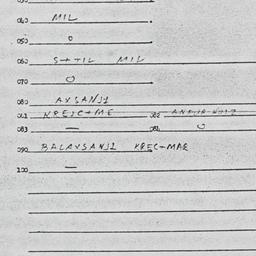 040 MIL
050 0
060 S+TIL MIL
070 0
080 AXSANJI
081 KREJC+ME 082
083 — 084 0
090 BALAXSANJI KREC+MAE
100 —